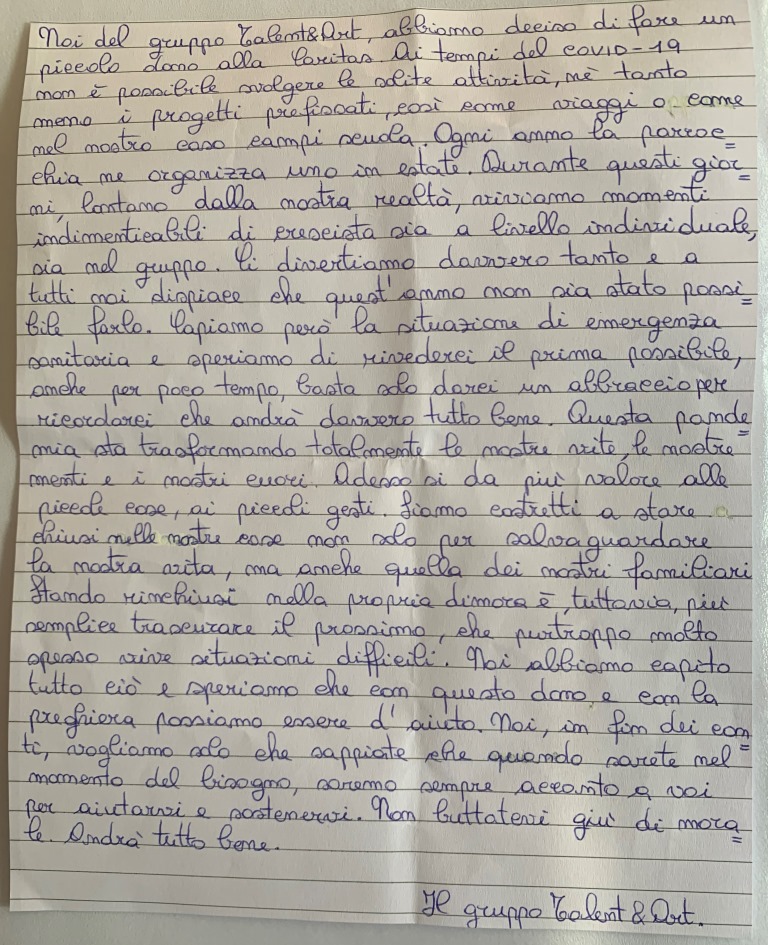 Noi del gruppo Talent&Art, abbiamo deciso di fare un
piccolo dono alla Caritas. Ai tempi del covid-19
non è possibile svolgere le solite attività, nè tanto
meno i progetti prefissati, così come viaggi o come
nel nostro caso campi scuola. Ogni anno la parroc=
chia ne organizza uno in estate. Durante questi gior=
ni, lontano dalla nostra realtà, viviamo momenti
indimenticabili di crescista sia a livello individuale,
sia nel gruppo. Ci divertiamo davvero tanto e a
tutti noi dispiace che quest'anno non sia stato possi=
bile farlo. Capiamo però la situazione di emergenza
sanitaria e speriamo di rivederci il prima possibile,
anche per poco tempo, basta solo darci un abbraccio per
ricordarci che andrà davvero tutto bene. Questa pande=
mia sta trasformando totalmente le nostre vite, le nostre
menti e i nostri cuori. Adesso si da più valore alle
piccole cose, ai piccoli gesti. Siamo costretti a stare
chiusi nelle nostre case non solo per salvaguardare
la nostra vita, ma anche quella dei nostri familiari
Stando rinchiusi nella propria dimora è, tuttavia, più
semplice trascurare il prossimo, che purtroppo molto
spesso vive situazioni difficili. Noi abbiamo capito
tutto ciò e speriamo che con questo dono e con la
preghiera possiamo essere d'aiuto. Noi, in fin dei con=
ti, vogliamo solo che sappiate che quando sarete nel
momento del bisogno, saremo sempre accanto a voi
per aiutarvi e sostenervi. Non buttatevi giù di mora=
le. Andrà tutto bene.
Il gruppo Talent&Art.